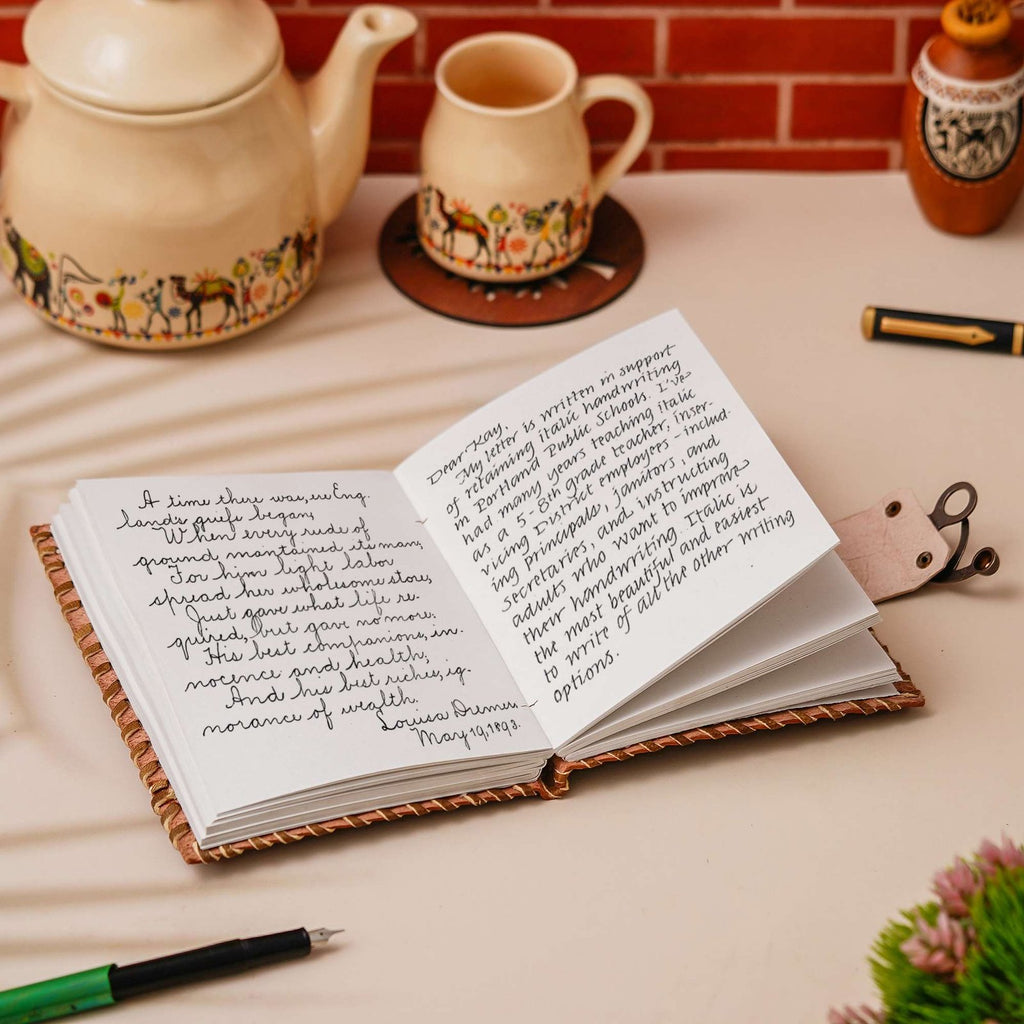 A time there was, ere Eng.
land's griefs began,
When every rood of
ground mantained its man;
For him light labor
spread her wholesome store,
Just gave what life re-
quired, but gave no more:
His best companions, in.
nocence and health;
And his best riches, ig-
norance of wealth.
Louisa Diemer.
May 19, 1893.
Dear Kay,
My letter is written in support
of retaining italic handwriting
in Portland Public Schools. I've
had many years teaching italic
as a 5-8th grade teacher, inser-
vicing District employees - includ-
ing principals, janitors, and
secretaries, and, instructing
adults who want to improve
their handwriting. Italic is
the most beautiful and easiest
to write of all the other writing
options.